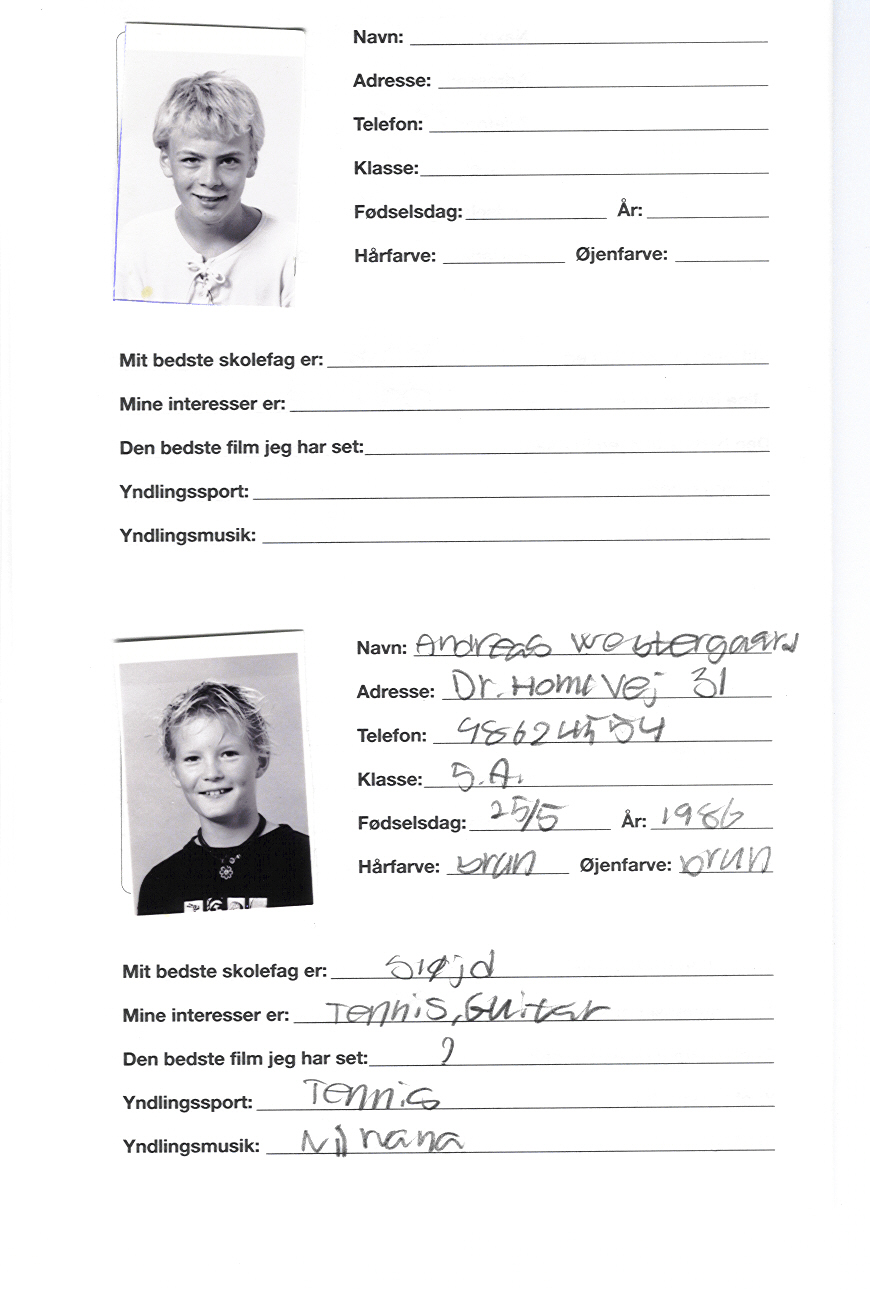 Navn:
Adresse:
Telefon:
Klasse:
Fødselsdag: År:
Hårfarve: Øjenfarve:
Mit bedste skolefag er:
Mine interesser er:
Den bedste film jeg har set:
Yndlingssport:
Yndlingsmusik:
Navn: Andreas Westergaard
Adresse: Dr. Homevej 31
Telefon:
Klasse: 5.A.
Fødselsdag: 25/5 År: 1986
Hårfarve: brun Øjenfarve: brun
Mit bedste skolefag er: Sløjd
Mine interesser er: Tennis, Guitar
Den bedste film jeg har set: ?
Yndlingssport: Tennis
Yndlingsmusik: Nirvana